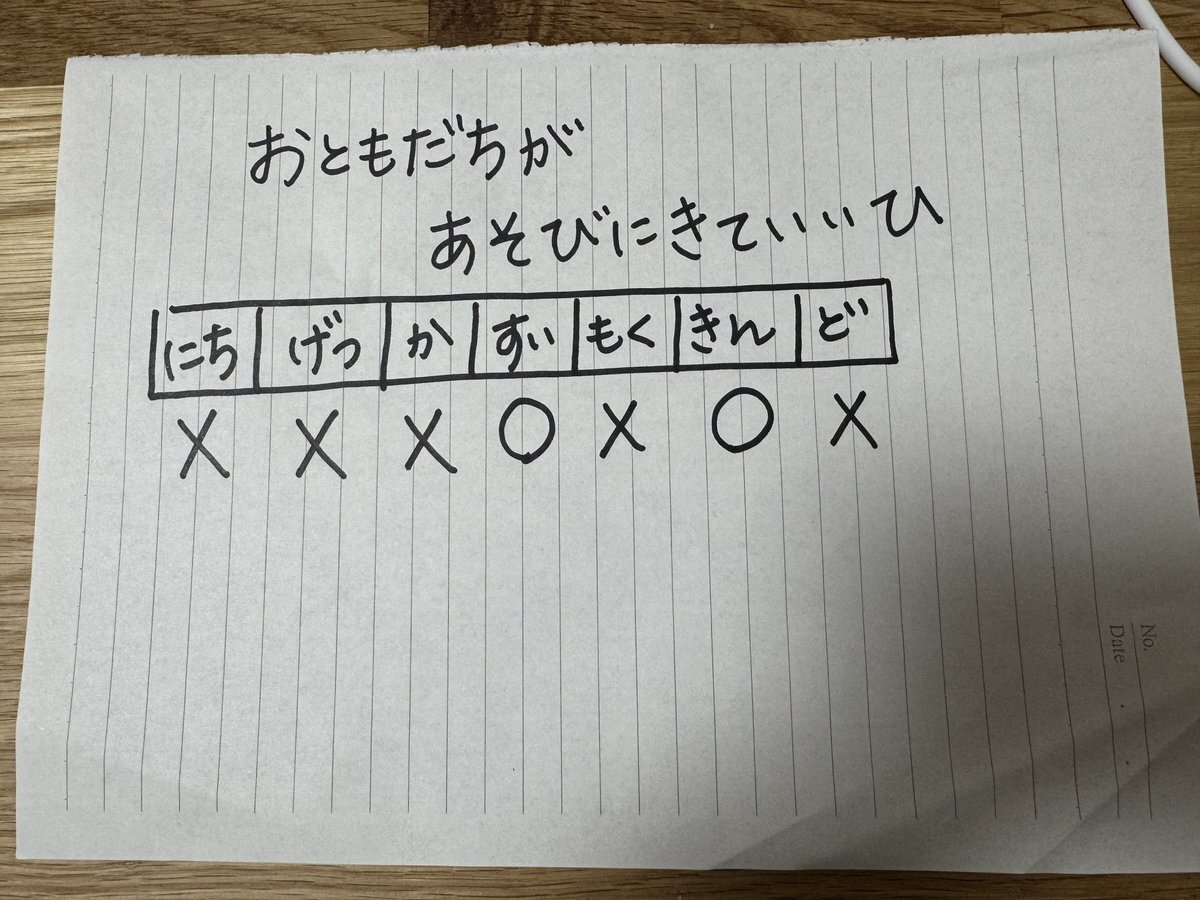 おともだちが
あそびにきていいひ
にち げつ か すい もく きん ど
X X X ○ X ○ X
No.
Date